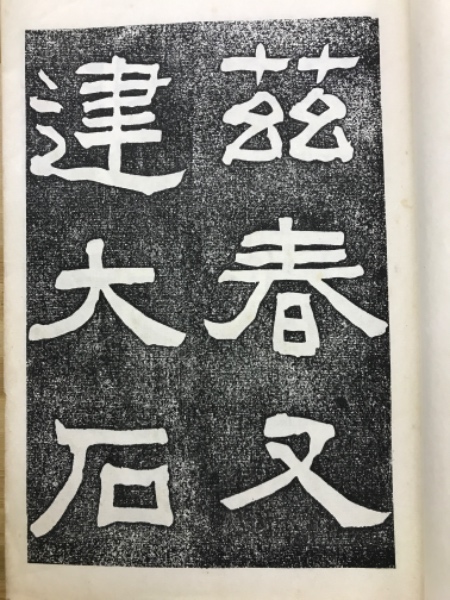 茲春又
建大石